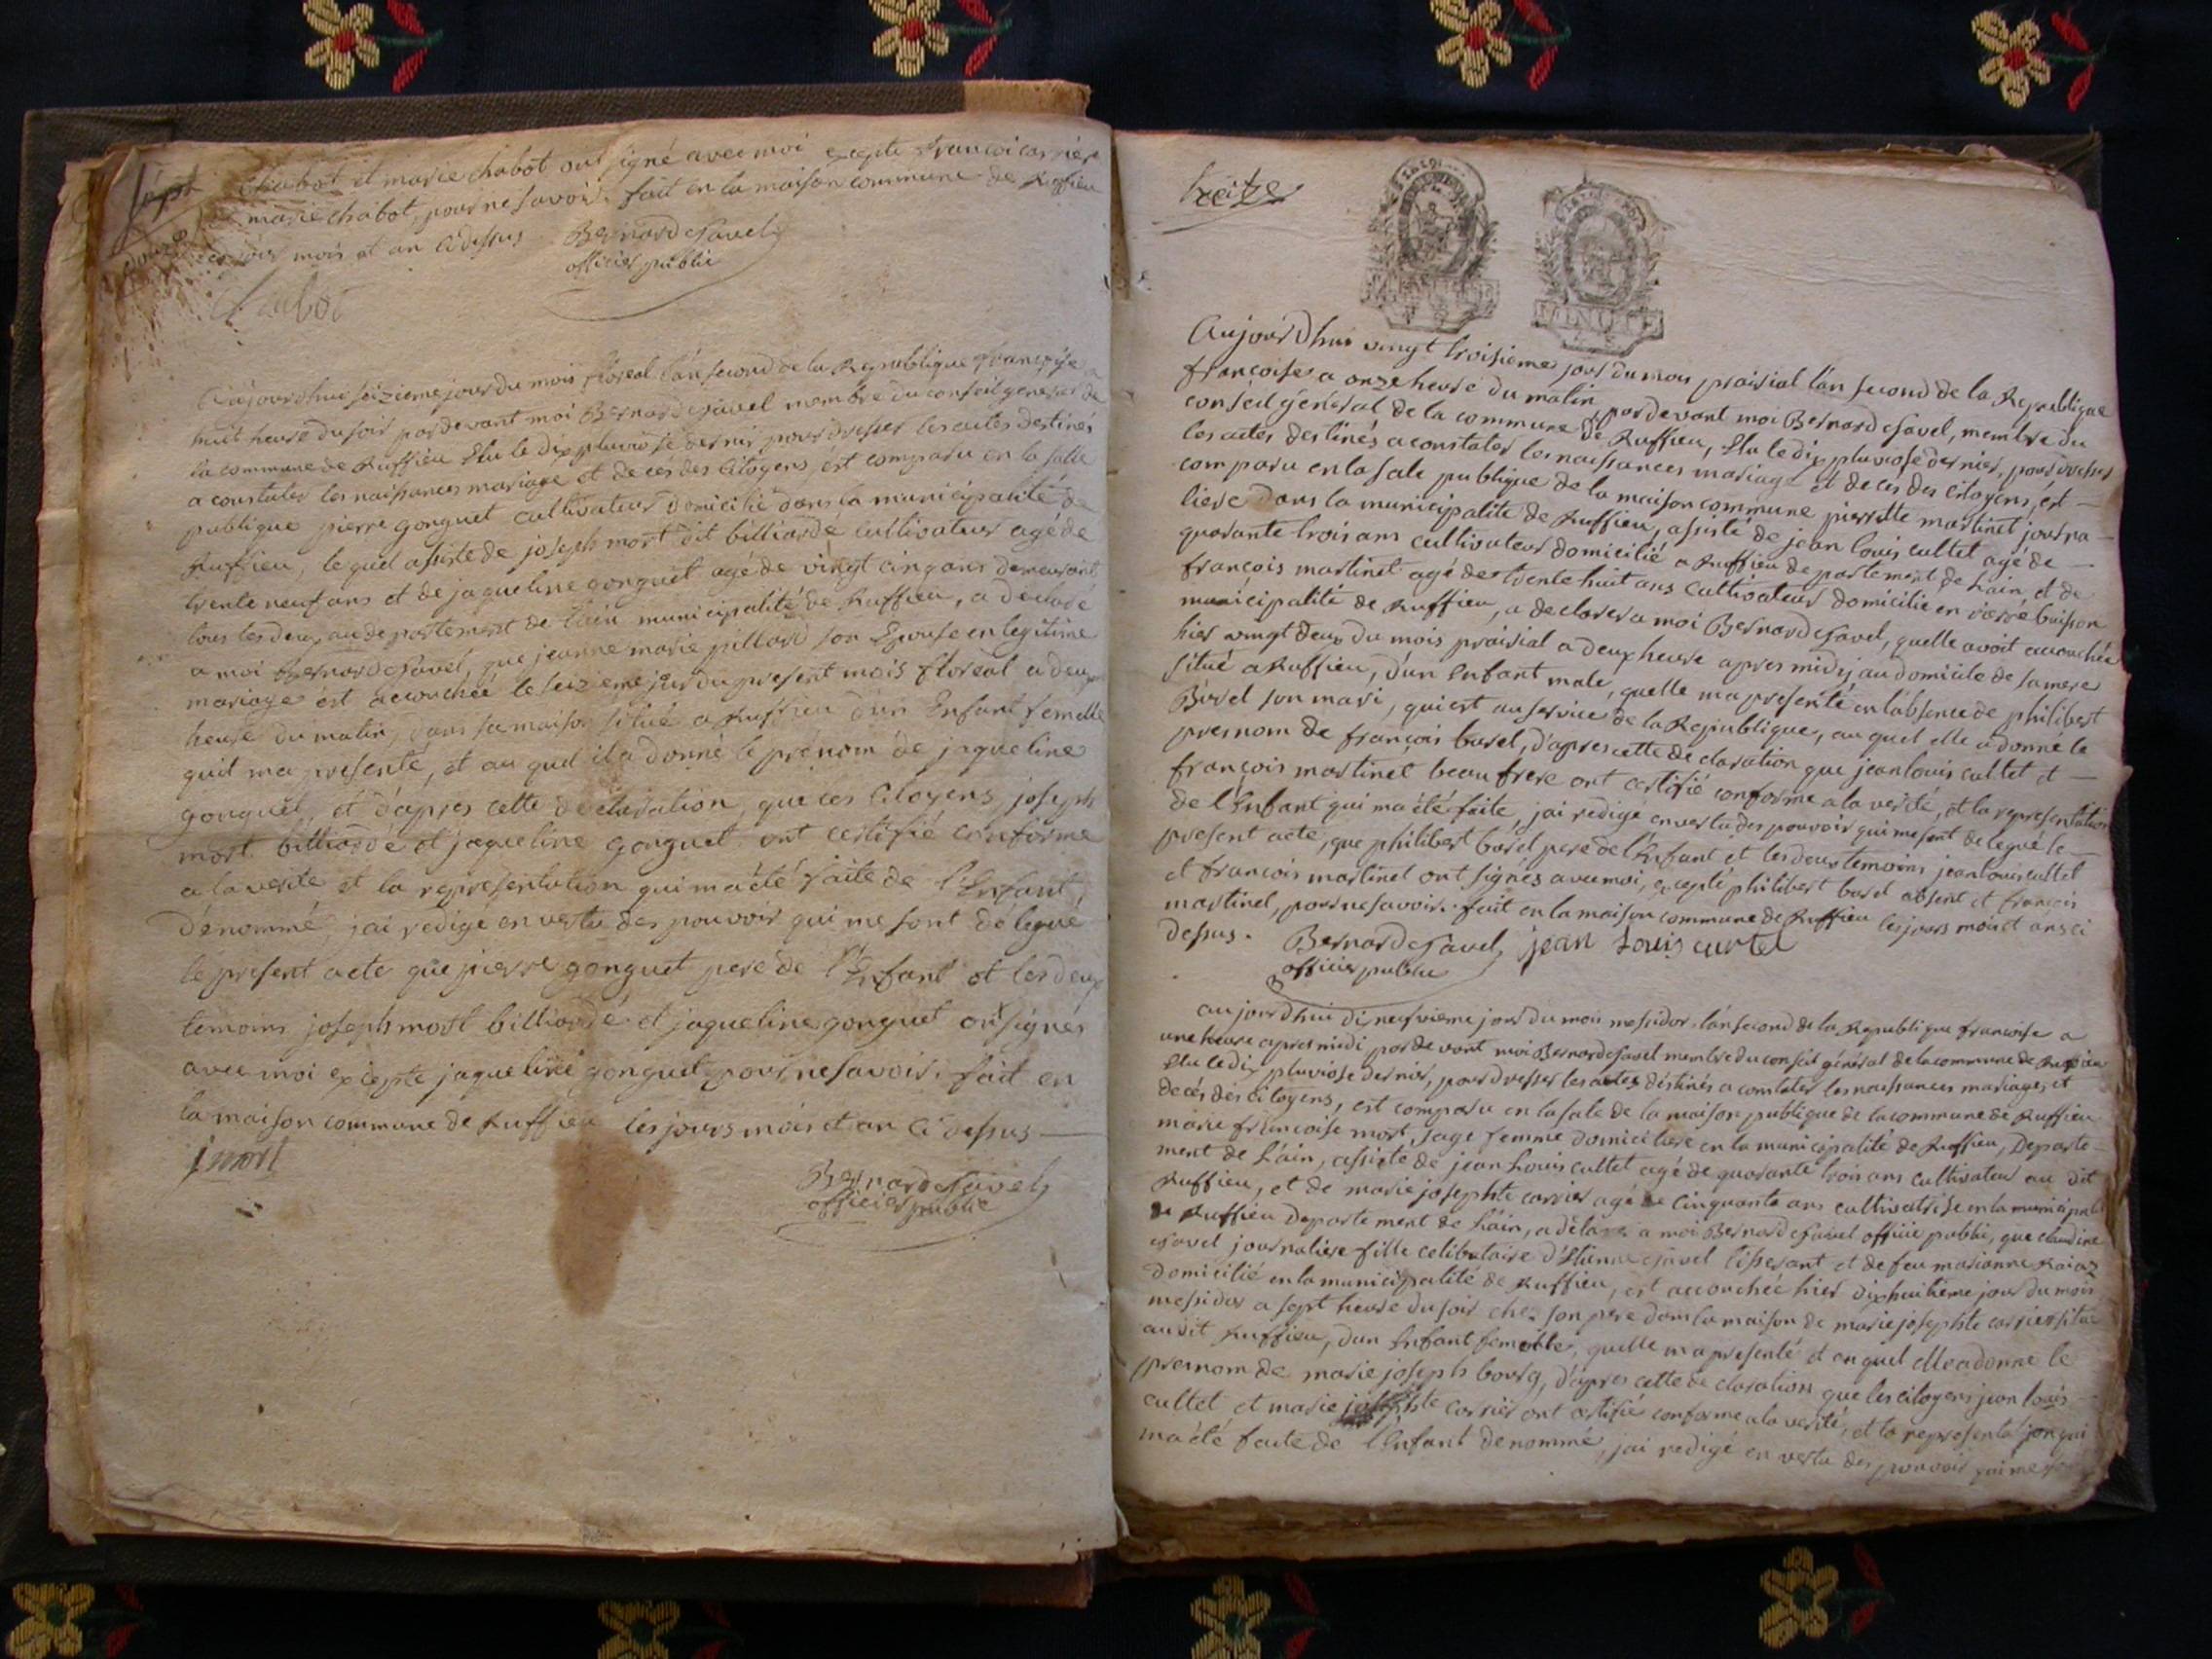 sept
Chabot et marie chabot ont signé avec moi excepté francoi carrier
marie chabot, pour ne savoir. fait en la maison commune de Ruffieu
les jours mois et an ci dessus
Bernard Savel
officier public
Chabot
Aujourdhui seizieme jour du mois floreal lan second de la Republique française a
huit heure du soir par devant moi Bernard Savel membre du conseil general de
la commune de Ruffieu Elu le dix pluviose dernier pour dresser les actes destinés
a constater les naissances mariage et deces des citoyens est comparu en la salle
publique pierre gonguet cultivateur domicilié dans la municipalité de
Ruffieu, le quel assisté de joseph mort dit billiarde cultivateur agé de
trente neuf ans et de jaqueline gonguet agé de vingt cinq ans demeurant
tous les deux au departement de lain municipalité de Ruffieu, a declaré
a moi Bernard Savel, que jeanne marie pillard son Epouse en legitime
mariage est acouchée le seizieme jour du present mois floreal a deux
heure du matin, dans sa maison situé a Ruffieu d'un Enfant femelle
quil ma presenté, et au quel il a donné le prénom de jaqueline
gonguet, et d'apres cette declaration, que ces citoyens joseph
mort billiarde et jaqueline gonguet ont certifié conforme
a la verite et la representation qui ma été faite de l'Enfant
dénommé, jai redigé en vertu des pouvoir qui me sont delegué
le present acte que pierre gonguet pere de l'Enfant et les deux
temoins joseph mort billiarde et jaqueline gonguet ont signés
avec moi excepte jaqueline gonguet pour ne savoir. fait en
la maison commune de Ruffieu les jours mois et an ci dessus
j mort
Bernard Savel
officier public
huite
MINUTE
Aujourdhui vingt troisieme jour du mois prairial lan second de la Republique
françoise a onze heure du matin, par devant moi Bernard Savel, membre du
conseil général de la commune de Ruffieu, Elu le dix pluviose dernier, pour dresser
les actes destinés a constater les naissances mariage et deces des citoyens, est
comparu en la sale publique de la maison commune pierrette martinet journa
liere dans la municipalite de Ruffieu, assisté de jean louis cultet agé de
quarante trois ans cultivateur domicilié a Ruffieu departement de Lain, et de
françois martinet agé de trente huit ans cultivateur domicilié en
municipalité de Ruffieu, a declarer a moi Bernard Savel, quelle avoit accouchée
hier vingt deux du mois prairial a deux heure apres midy, au domicile de sa mere
situé a Ruffieu, d'un Enfant male, quelle ma presenté en l'absence de philibert
Burel son mari, qui est au service de la Republique, au quel elle a donné le
prenom de françois burel, d'apres cette declaration que jean louis cultet et
françois martinet beau frere ont certifié conforme a la verité, et la representation
de l'Enfant qui ma été faite, jai redigé en vertu des pouvoir qui me sont delegué le
present acte, que philibert burel pere de l'Enfant et les deux temoins jean louis cultet
et francois martinet ont signés avec moi, excepté philibert burel absent et francois
martinet, pour ne savoir. fait en la maison commune de Ruffieu les jours mois et an ci
dessus.
Bernard Savel jean Louis curtet
officier public
aujourdhui dix neufvieme jour du mois messidor lan second de la Republique francoise a
une heure apres midi par devant moi Bernard Savel membre du conseil général de la commune de Ruffieu
Elu le dix pluviose dernier, pour dresser les actes destinés a constater les naissances mariages et
décés des citoyens, est comparu en la sale de la maison publique de la commune de Ruffieu
marie françoise mort, sage femme domiciliere en la municipalité de Ruffieu, Departe
ment de Lain, assisté de jean Louis cultet agé de quarante trois ans cultivateur au dit
Ruffieu, et de marie josephte carrier agé de cinquante ans cultivatrise en la municipalité
de Ruffieu departement de Lain, a déclaré a moi Bernard Savel officie public, que claudine
Savel journaliere fille celibataire d'Etienne Savel tisserant et de feu marianne
domicilié en la municipalité de Ruffieu, est accouchée hier dixhuitieme jour du mois
messidor a sept heure du soir chez son pere dans la maison de marie josephte carrier situé
audit Ruffieu, d'un Enfant femelle, quelle ma presenté et au quel elle a donné le
prenom de marie joseph bourg, d'apres cette declaration que les citoyens jean louis
cultet et marie josephte carrier ont certifié conforme a la verité, et la representation qui
ma été faite de l'Enfant denommé, jai redigé en vertu des pouvoir qui me